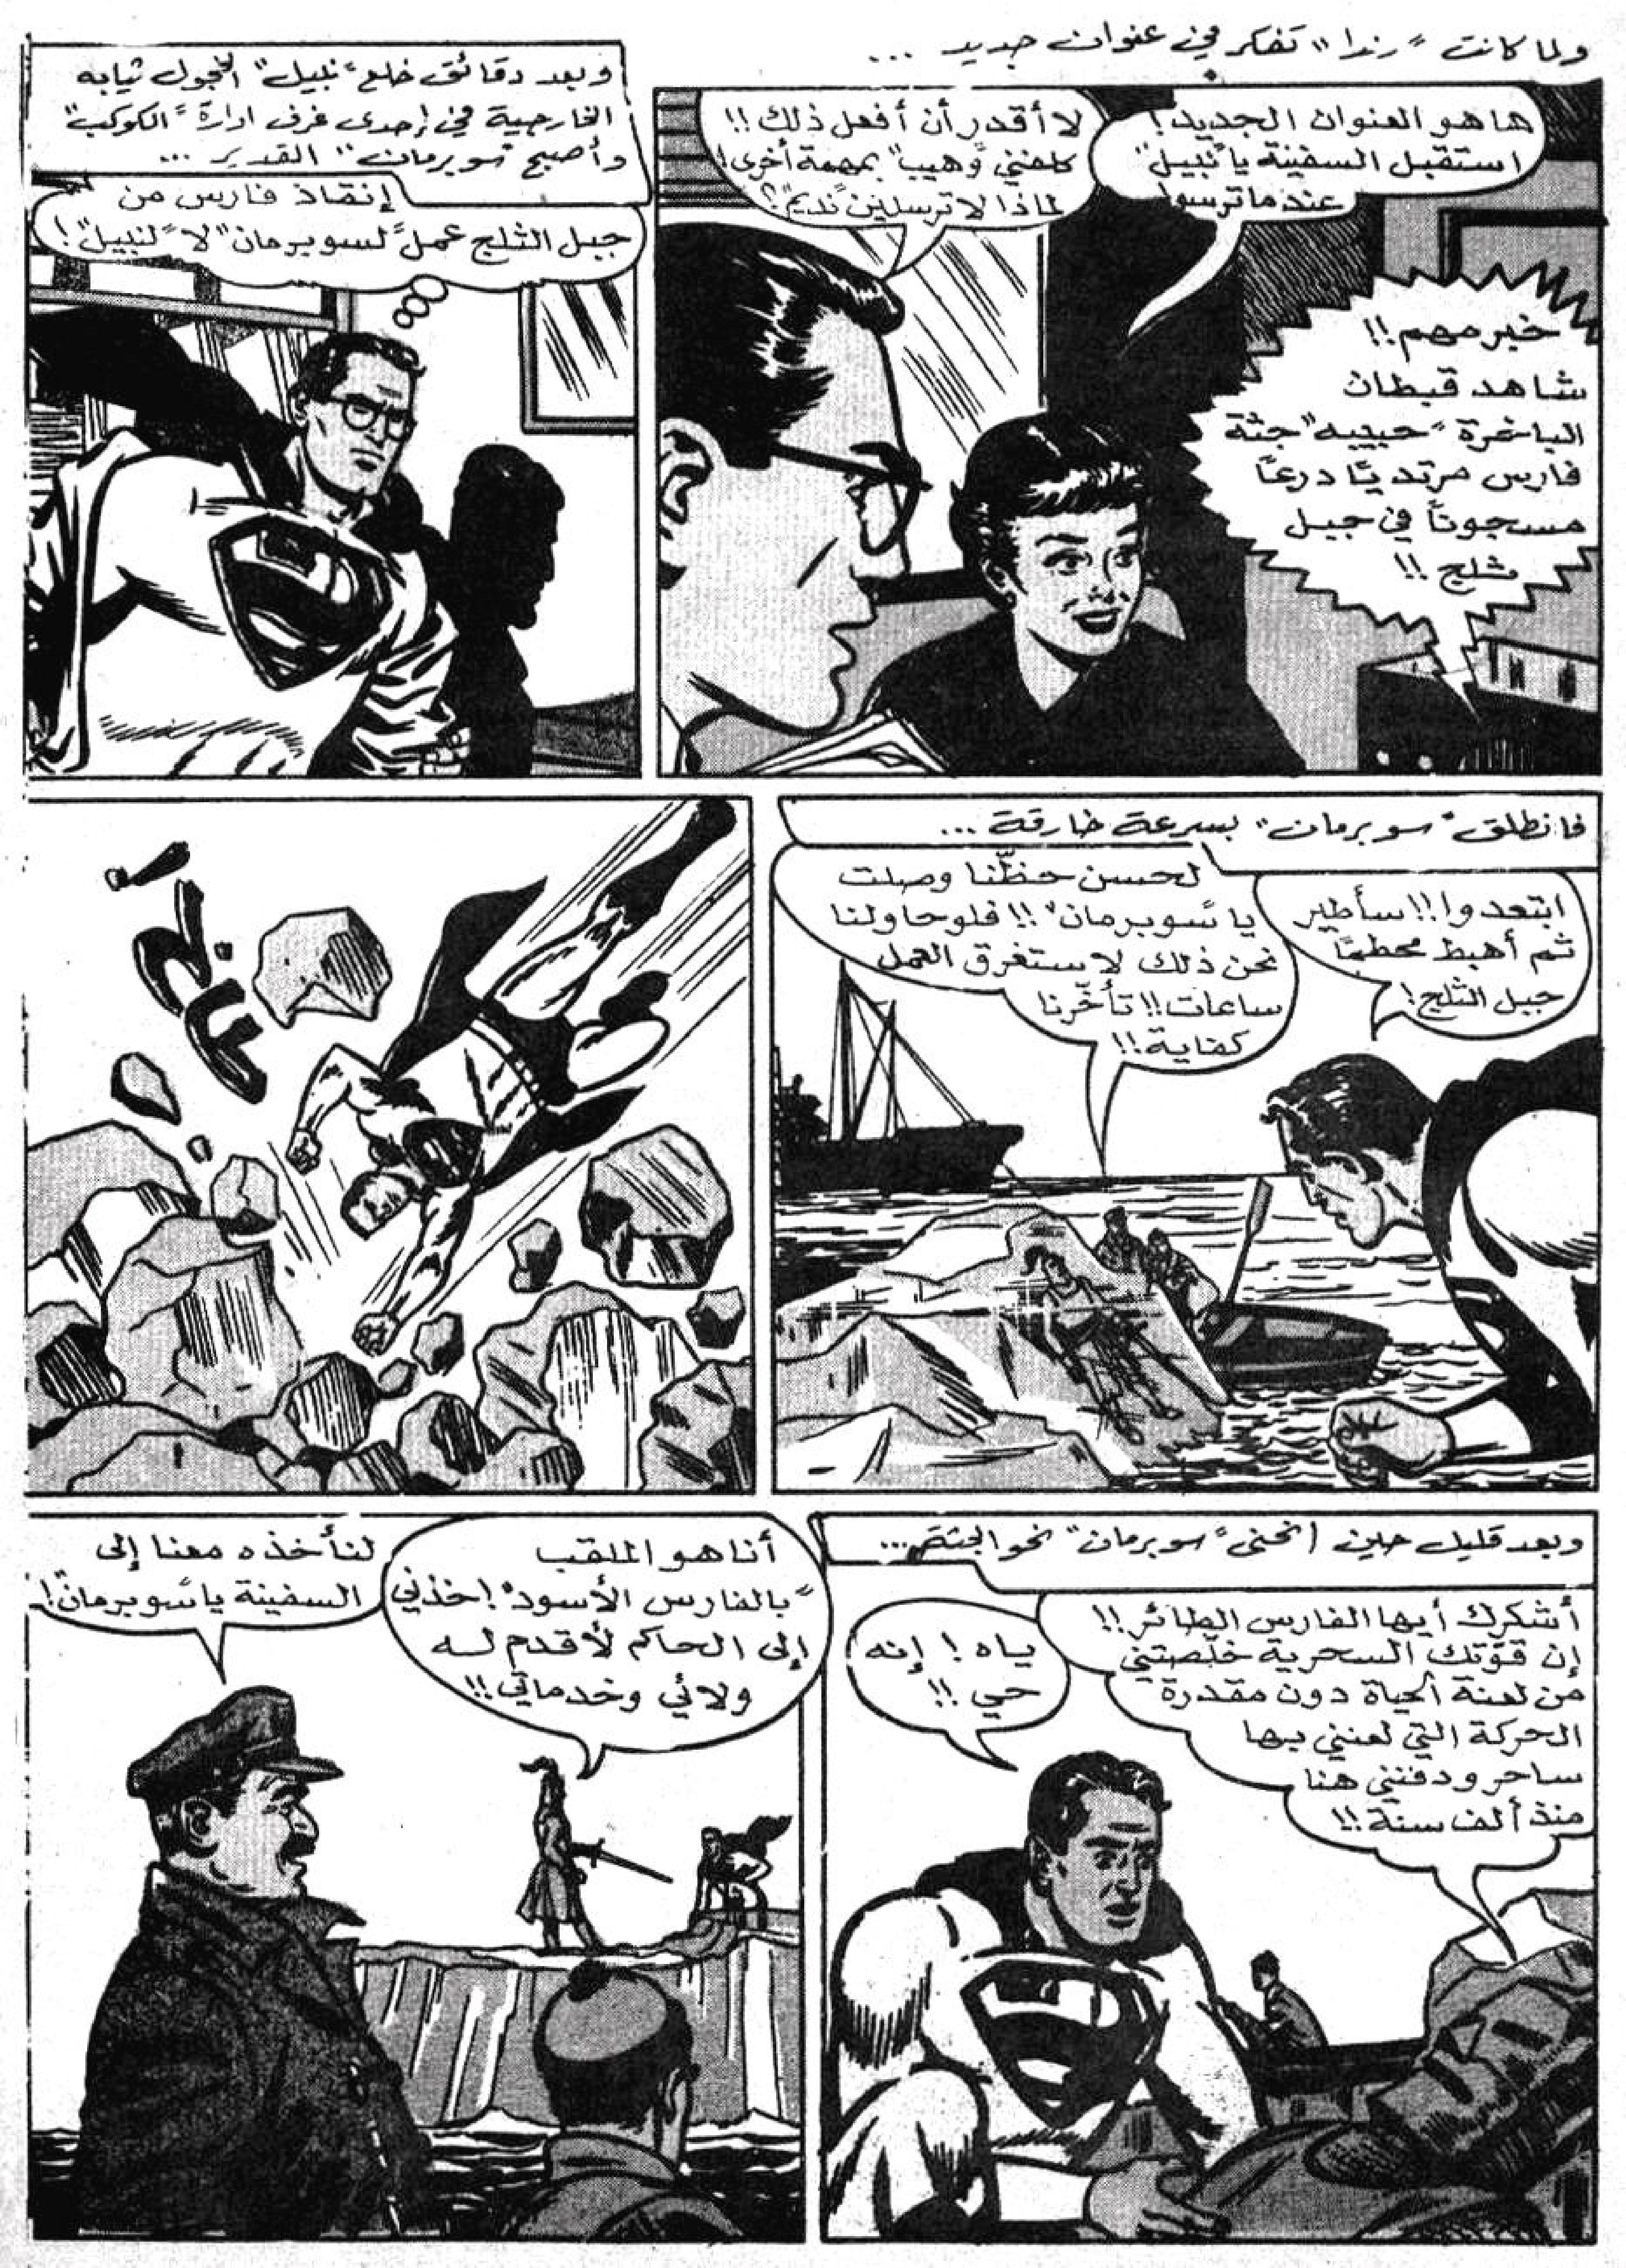 ولما كانت "رندا" تفكر في عنوان جديد ...
خبر مهم!!
شاهد قبطان
الباخرة "حبيبه" جثة
فارس مرتديًا درعًا
مسجونًا في جبل
ثلج!!
ها هو العنوان الجديد!
استقبل السفينة يا "نبيل"
عندما ترسو!
لا أقدر أن أفعل ذلك!!
كلفني "وهيب" بمهمة أخرى!
لماذا لا ترسلين "نديم"؟
وبعد دقائق خلع "نبيل" الخجول ثيابه
الخارجية في إحدى غرف ادارة "الكوكب"
وأصبح "سوبرمان" القدير ...
إنقاذ فارس من
جبل الثلج عمل "لسوبرمان" لا "لنبيل"!
فانطلق "سوبرمان" بسرعة خارقة ...
ابتعدوا!! سأطير
ثم أهبط محطمًا
جبل الثلج!
لحسن حظّنا وصلت
يا "سوبرمان"!! فلو حاولنا
نحن ذلك لاستغرق العمل
ساعات!! تأخّرنا
كفاية!!
وبعد قليل حين انحنى "سوبرمان" نحو الجثة ...
أشكرك أيها الفارس الطائر!!
إن قوّتك السحرية خلّصتني
من لعنة الحياة دون مقدرة
الحركة التي لعنني بها
ساحر ودفنني هنا
منذ ألف سنة!!
ياه! إنه
حي!!
أنا هو الملقب
"بالفارس الأسود"! خذني
إلى الحاكم لأقدم له
ولائي وخدماتي!!
لنأخذه معنا إلى
السفينة يا "سوبرمان"!